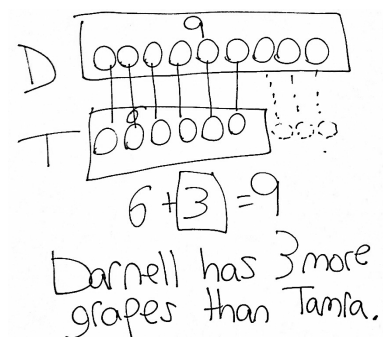 9
D
T
6 + 3 = 9
Darnell has 3 more
grapes than Tamra.